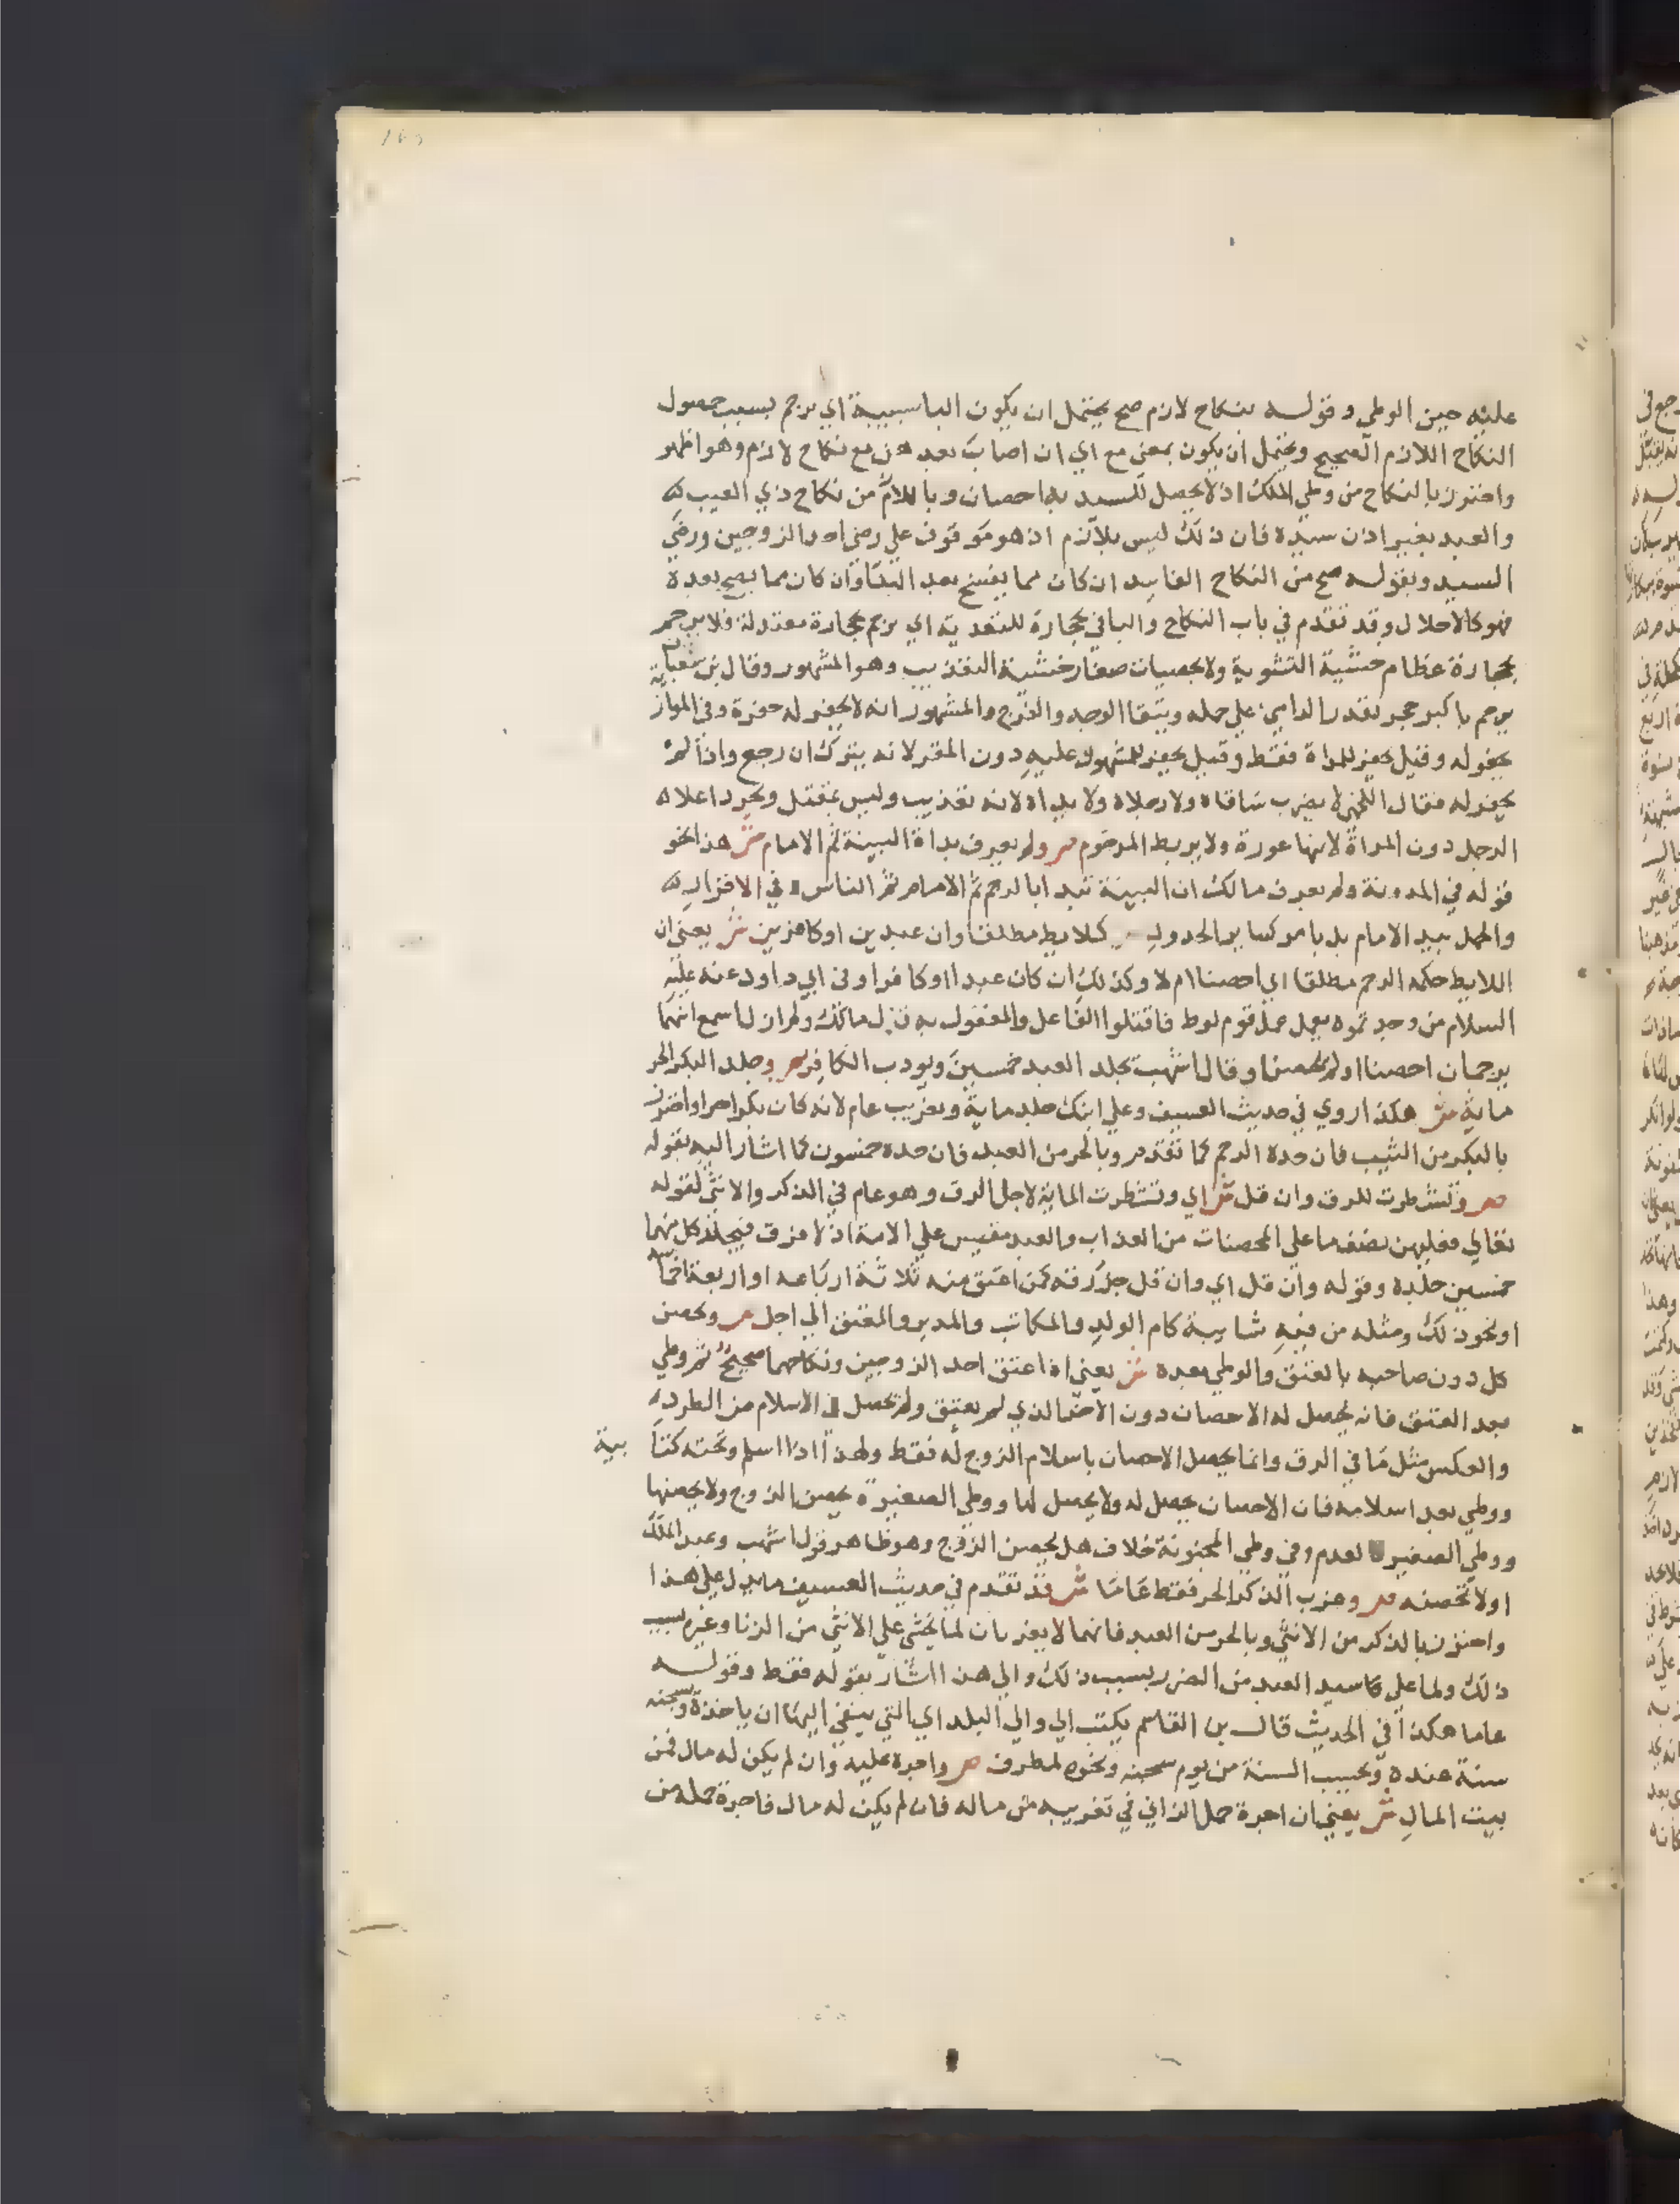 عليه حين الوطي وقوله بنكاح لازم صح يحتمل ان يكون الباسببية اي يرجم بسبب حصول
النكاح اللازم الصحيح ويحتمل ان يكون بمعني مع اي ان اصاب بعدهن مع نكاح لازم وهو اظهر
واحترز بالنكاح من وطي الملك اذ لا يحصل للسيد به احصان وباللازم من نكاح ذي العيب
والعبد بغير اذن سيده فان ذلك ليس بلازم اذ هو موقوف علي رضي احد الزوجين ورضي
السيد وبقوله صح من النكاح الفاسد ان كان مما يفسخ بعد البنا وان كان مما يصح بعده
فهو كالاحلال وقد تقدم في باب النكاح والبا في بحجارة للتعدية اي يرجم بحجارة معتدلة فلا يرجم
بحجارة عظام خشية التشوية ولا بحصيات صغار خشية التعذيب وهو المشهور وقال بن شعبان
يرجم باكبر حجر بقدر الرامي علي حمله ويتقا الوجه والفرج والمشهور انه لا يحفر له حفرة وفي المواز
يحفر له وقيل يحفر للمراة فقط وقيل يحفر للمشهود عليه دون المقر لانه يترك ان رجع واذا لم
يحفر له فقال اللخمي لا يضرب ساقاه ولا رجلاه ولا يداه لانه تعذيب وليس بمقتل ويجرد اعلاه
الرجل دون المراة لانها عورة ولا يربط المرجوم ص ولم يعرف بداة البينة ثم الامام ش هذا نحو
قوله في المدونة ولم يعرف مالك ان البينة تبدا بالرجم ثم الامام ثم الناس في الاقرار
والحمل يبد الامام بل يامر كساير الحدود ص كلايط مطلقا وان عبدين او كافرين ش يعني ان
اللايط حكمه الرجم مطلقا اي احصنا ام لا وكذلك ان كان عبدا او كافرا وفي ابي داود عنه عليه
السلام من وجدتموه يعمل عمل قوم لوط فاقتلوا الفاعل والمفعول به قال مالك ولم ازل اسمع انهما
يرجمان احصنا او لم يحصنا وقال اشهب يجلد العبد خمسين ويودب الكافر ص وجلد البكر الحر
ماية ش هكذا روي في حديث العسيف وعلي ابنك جلد ماية وتغريب عام لانه كان بكرا حرا واحترز
بالبكر من الثيب فان حده الرجم كما تقدم وبالحر من العبد فان حده خمسون كما اشار اليه بقوله
ص وتشطرت للرق وان قل ش اي وتشطرت الماية لاجل الرق وهو عام في الذكر والانثي لقوله
تعالي فعليهن نصف ما علي المحصنات من العذاب والعبد مقيس علي الامة اذ لا فرق فيجلد كل منهما
خمسين جلدة وقوله وان قل اي وان قل جزء رقه كمن اعتق منه ثلاثة ارباعه او اربعة اخماسه
او نحو ذلك ومثله من فيه شايبة كام الولد والمكاتب والمدبر والمعتق الي اجل ص وتحصن
كل دون صاحبه بالعتق والوطي بعده ش يعني اذا عتق احد الزوجين ونكاحهما صحيح ثم وطي
بعد العتق فانه يحصل له الاحصان دون الاخر الذي لم يعتق ولم تحصل في الاسلام من الطرد
والعكس مثل ما في الرق وانما يحصل الاحصان باسلام الزوج له فقط ولهذا اذا اسلم وتحته كتابية
ووطي بعد اسلامه فان الاحصان يحصل له ولا يحصل لها ووطي الصغيرة يحصن الزوج ولا يحصنها
ووطي الصغير لعدم وفي وطي المجنونة خلاف هل يحصن الزوج وهو ظاهر قول اشهب وعبد الملك
اولا تحصنه ص وغرب الذكر الحر فقط عاما ش قد تقدم في حديث العسيف ما يدل علي هذا
واحترز بالذكر من الانثي وبالحر من العبد فانهما لا يغربان لما يخشي علي الانثي من الزنا وغيره بسبب
ذلك ولما علي سيد العبد من الضرر بسبب ذلك والي هذا اشار بقوله فقط وقوله
عاما هكذا في الحديث قال بن القاسم يكتب الي والي البلد اي التي ينفي اليها ان ياخذه ويسجنه
سنة عنده ويحسب السنة من يوم سجنه ونحوه لمطرف ص واجره عليه وان لم يكن له مال فمن
بيت المال ش يعني ان اجرة حمل الزاني في تغريبه من ماله فان لم يكن له مال فاجرة حمله من